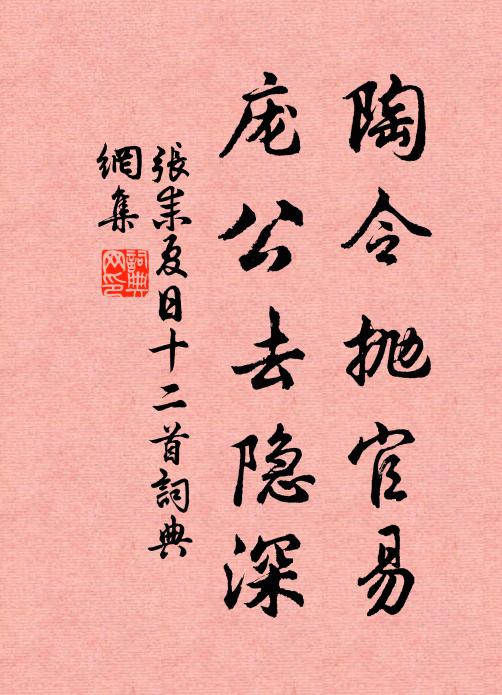 陶令抛官易
庞公去隐深
張耒夏日十二首詞典
網集
詞典
网印